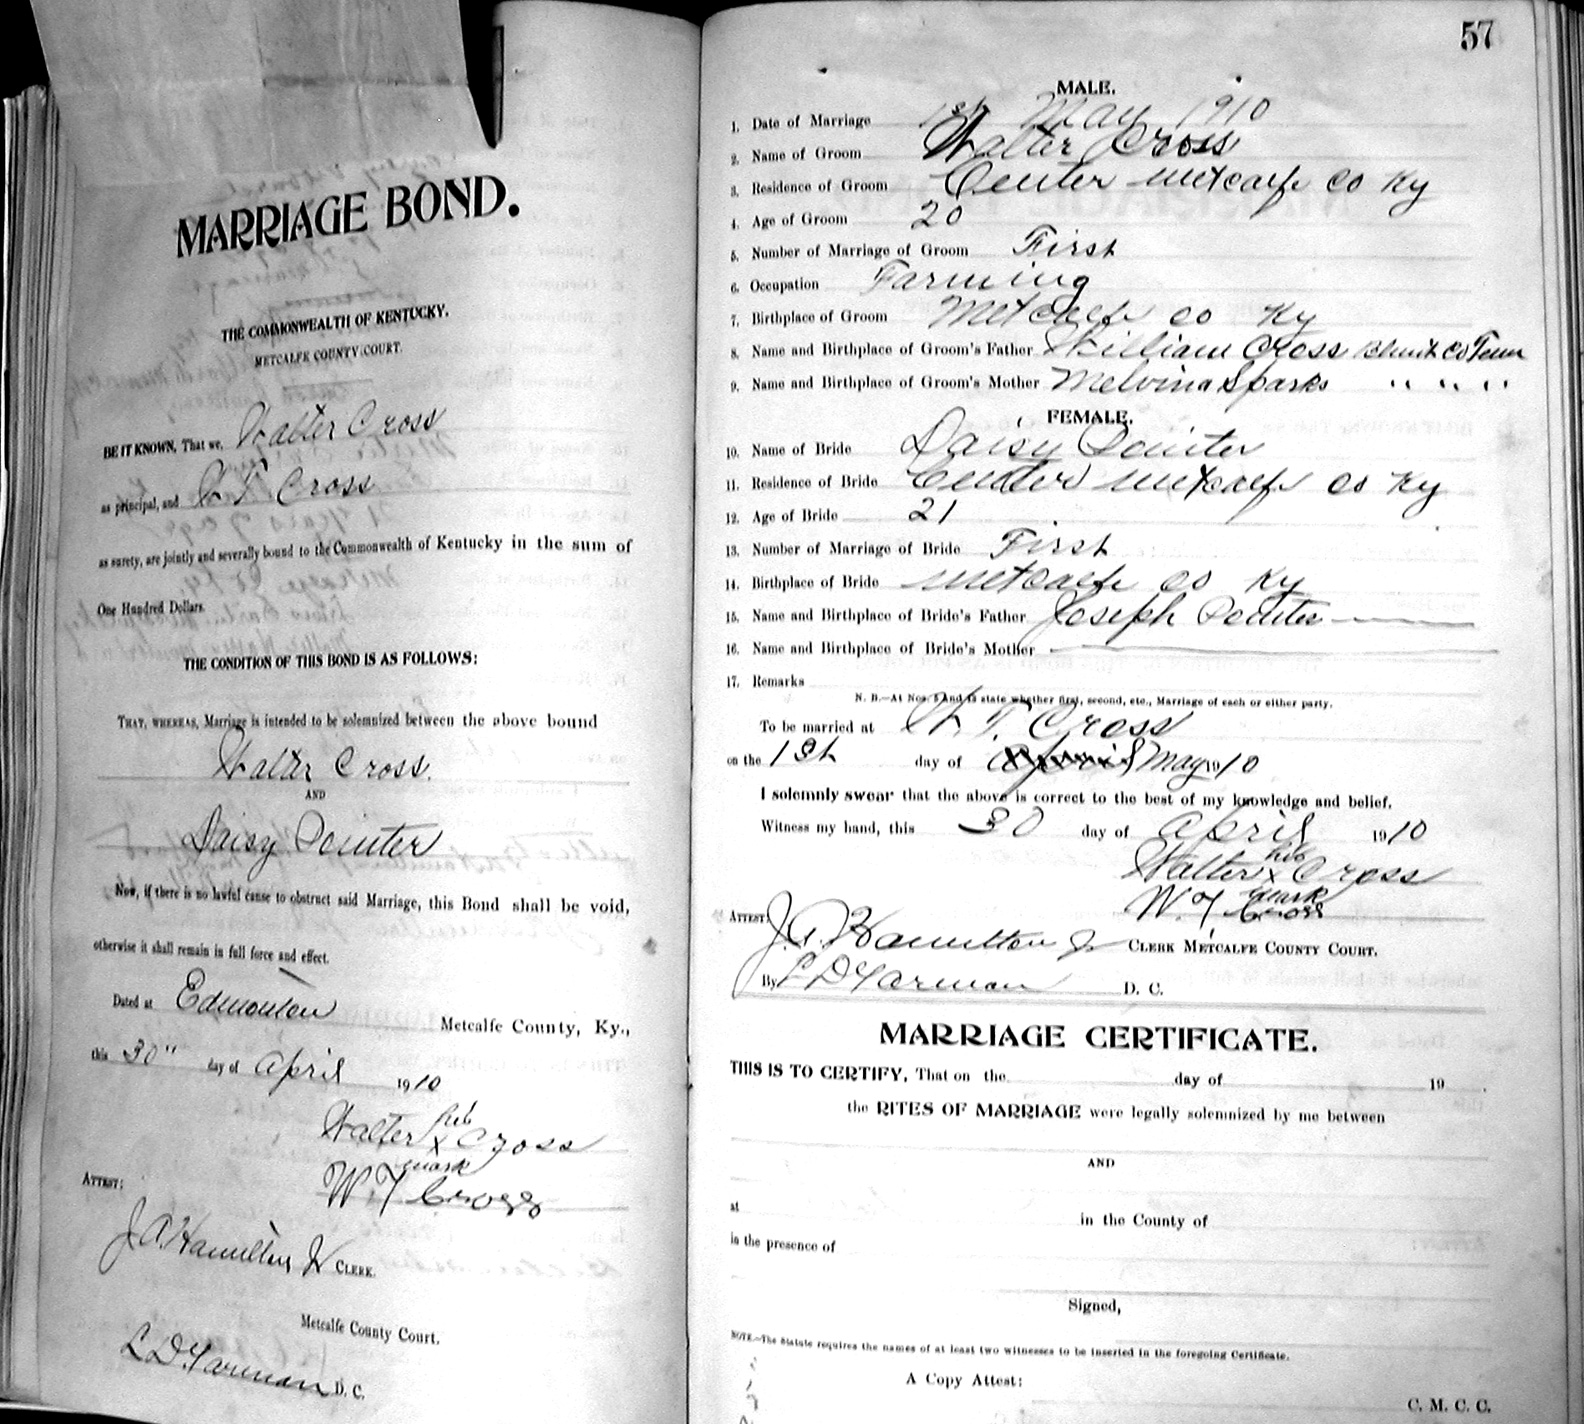 MARRIAGE BOND.
THE COMMONWEALTH OF KENTUCKY.
METCALFE COUNTY COURT.
BE IT KNOWN, That we, Walter Cross
as principal, and W T Cross
as surety, are jointly and severally bound to the Commonwealth of Kentucky in the sum of
One Hundred Dollars.
THE CONDITION OF THIS BOND IS AS FOLLOWS:
THAT, WHEREAS, Marriage is intended to be solemnized between the above bound
Walter Cross.
AND
Daisy Pointer
Now, if there is no lawful cause to obstruct said Marriage, this Bond shall be void,
otherwise it shall remain in full force and effect.
Dated at Edmonton Metcalfe County, Ky.,
this 30" day of April 1910
Walter his x mark Cross
W T Cross
ATTEST:
J A Hamilton Jr CLERK.
Metcalfe County Court.
L D Yarman D. C.
57
MALE.
1. Date of Marriage 1st May 1910
2. Name of Groom Walter Cross
3. Residence of Groom Center Metcalfe Co Ky
4. Age of Groom 20
5. Number of Marriage of Groom First
6. Occupation Farming
7. Birthplace of Groom Metcalfe Co Ky
8. Name and Birthplace of Groom's Father William Cross Co Tenn
9. Name and Birthplace of Groom's Mother Melvina Sparks " " " "
FEMALE.
10. Name of Bride Daisy Pointer
11. Residence of Bride Center Metcalfe Co Ky
12. Age of Bride 21
13. Number of Marriage of Bride First
14. Birthplace of Bride Metcalfe Co Ky
15. Name and Birthplace of Bride's Father Joseph Pointer
16. Name and Birthplace of Bride's Mother
17. Remarks
N. B.—At Nos. 5 and 13 state whether first, second, etc., Marriage of each or either party.
To be married at W. T. Cross
on the 1st day of April May 1910
I solemnly swear that the above is correct to the best of my knowledge and belief.
Witness my hand, this 30 day of April 1910
Walter his x mark Cross
W. T Cross
ATTEST:
J. A. Hamilton Jr CLERK METCALFE COUNTY COURT.
By L D Yarman D. C.
MARRIAGE CERTIFICATE.
THIS IS TO CERTIFY, That on the day of 19 .
the RITES OF MARRIAGE were legally solemnized by me between
AND
at in the County of
in the presence of
Signed,
NOTE.—The Statute requires the names of at least two witnesses to be inserted in the foregoing Certificate.
A Copy Attest:
C. M. C. C.